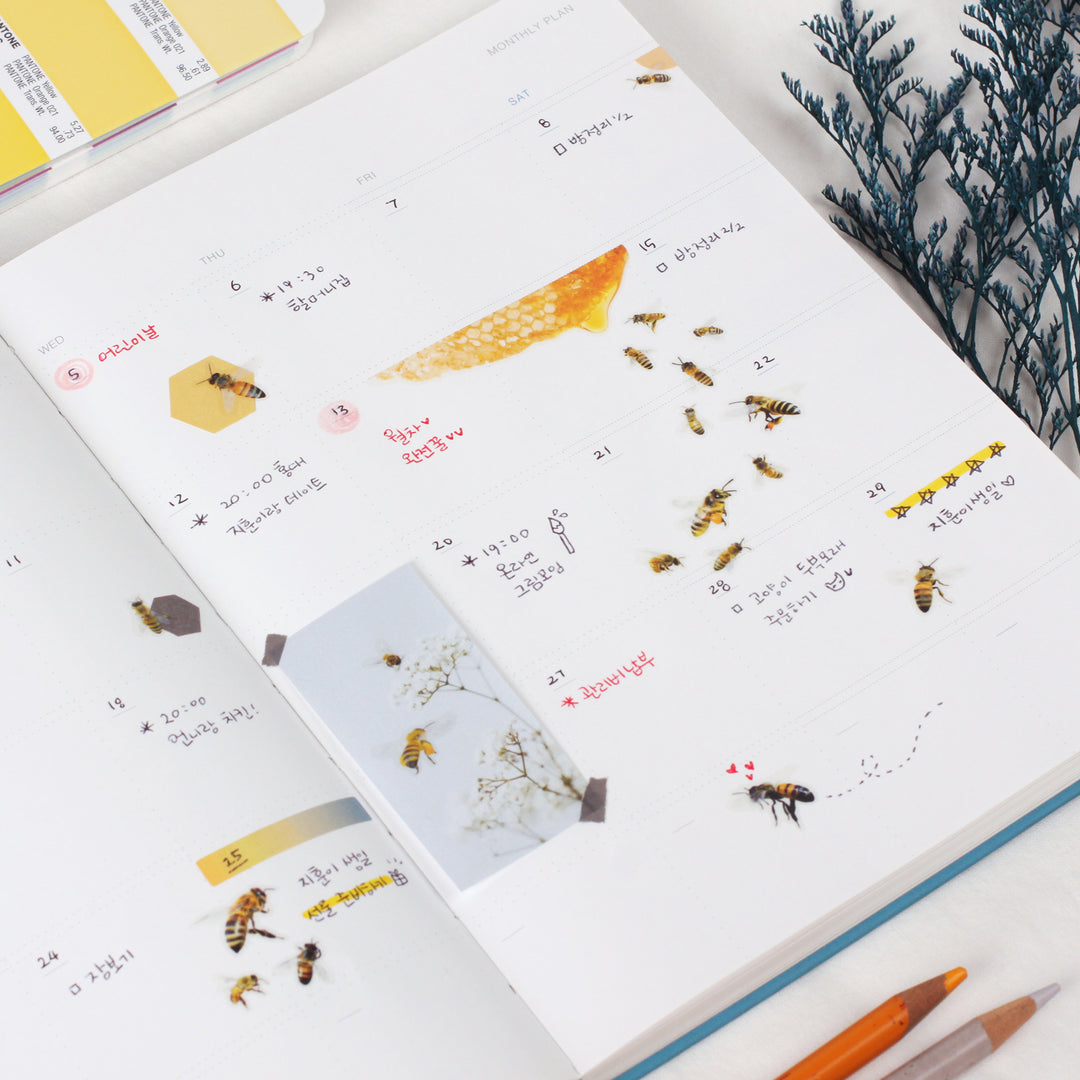 PANTONE
PANTONE Yellow 5.27
PANTONE Orange 021 .73
PANTONE Trans. Wt. 94.00
PANTONE Yellow 2.89
PANTONE Orange 021 .61
PANTONE Trans. Wt. 96.50
MONTHLY PLAN
WED
THU
FRI
SAT
5 어린이날
6
*19:30
할머니집
7
8
방정리 1/2
11
12
* 20:00 홍대
지훈이랑 데이트
13
월차♥
완전꿀♥♥
15
방정리 2/2
18
* 20:00
언니랑 치킨!
20
* 19:00
온라인
그림모임
21
22
24
장보기
25
지훈이 생일
선물 준비하기
27
* 관리비 납부
28
고양이 두부모래
주문하기
29
☆☆☆☆☆
지훈이생일♡